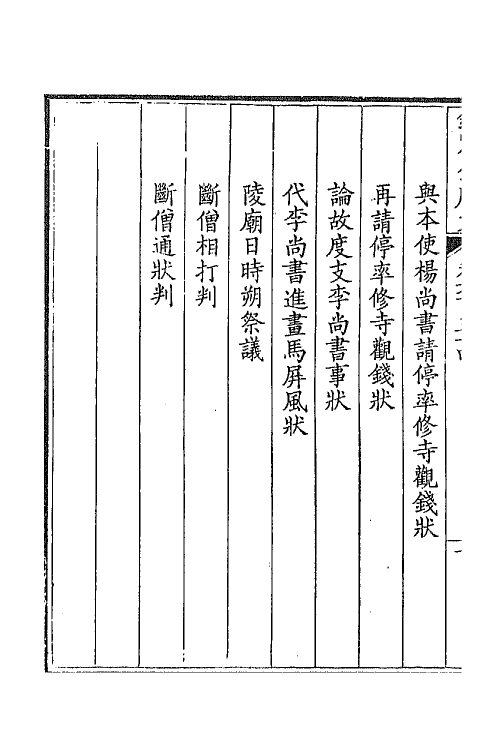 與本使楊尚書請停率修寺觀錢狀
再請停率修寺觀錢狀
論故度支李尚書事狀
代李尚書進畫馬屏風狀
陵廟日時朔祭議
斷僧相打判
斷僧通狀判